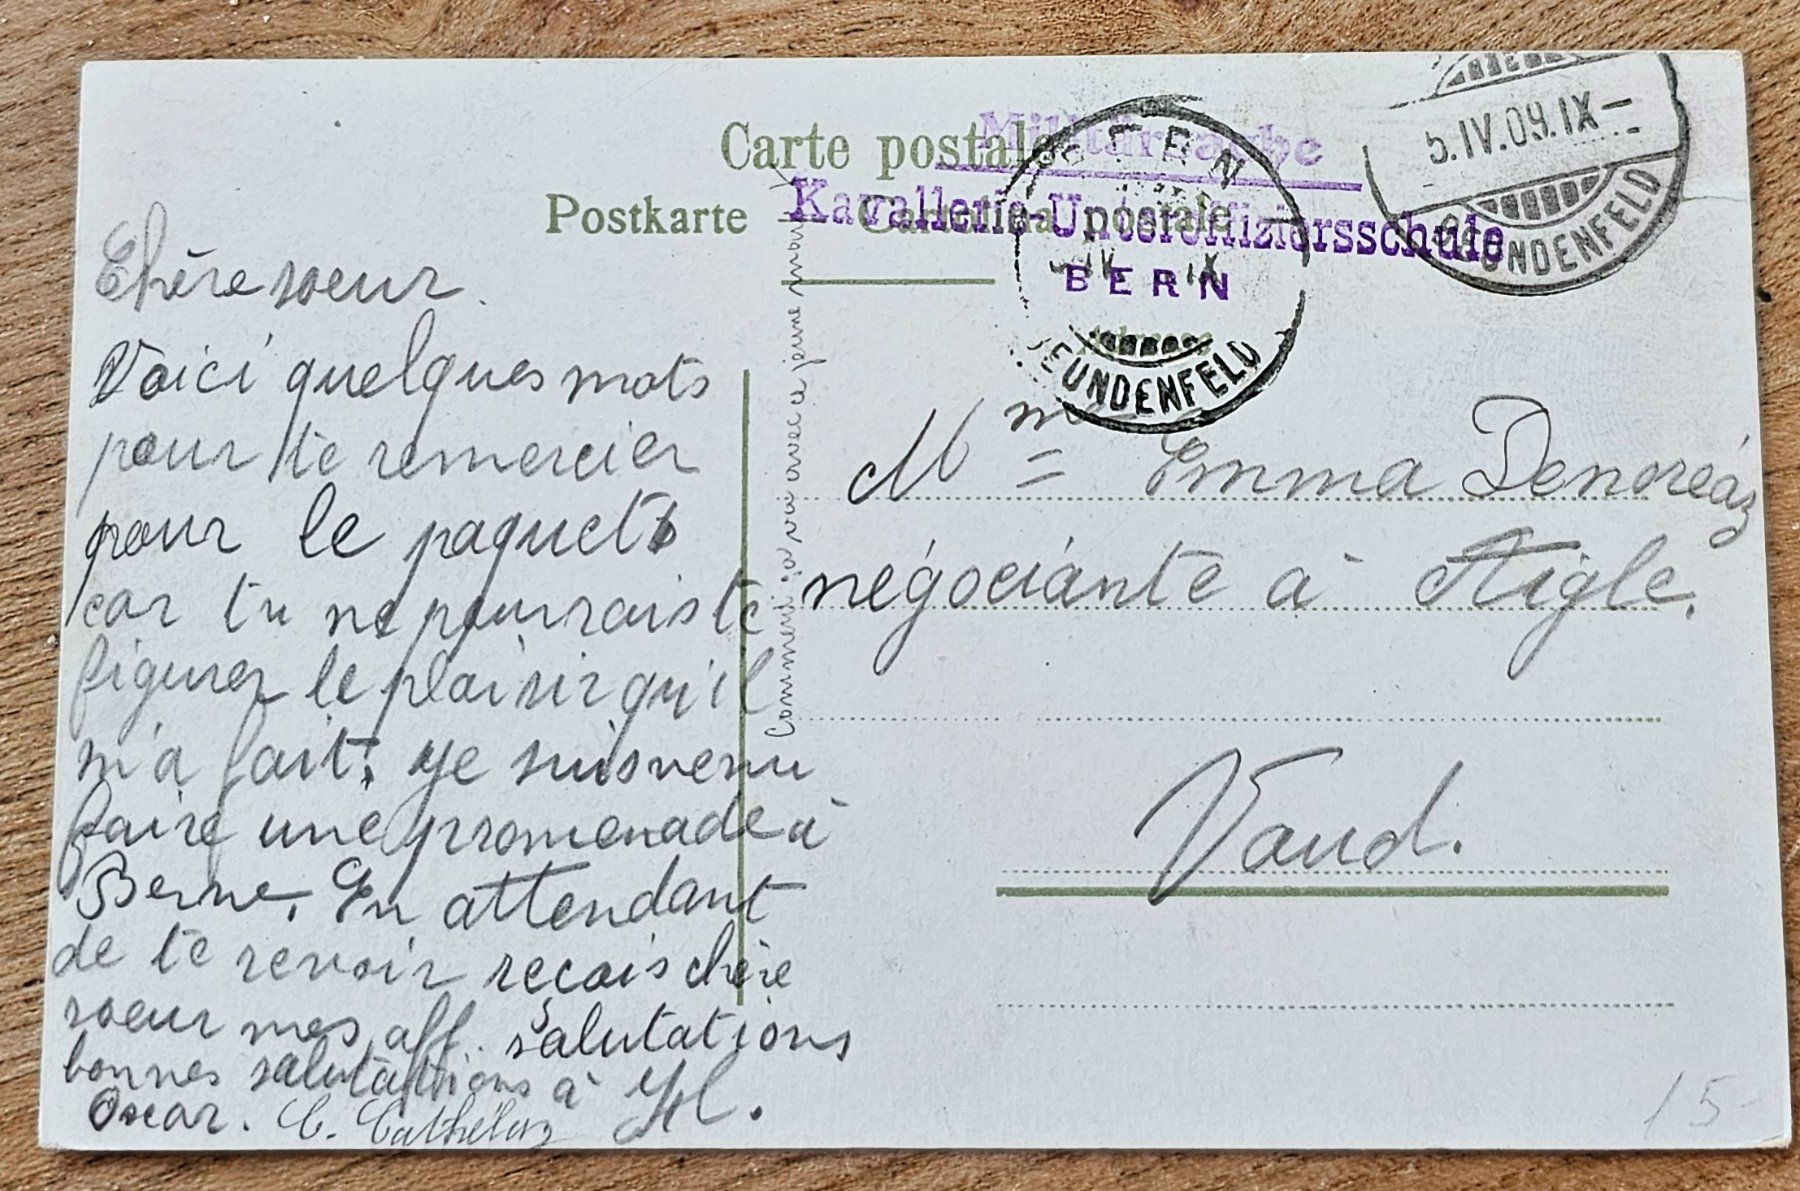 Carte postale
Militärsache
Postkarte Cartolina postale
Kavallerie-Unteroffiziersschule
BERN
BERN
BEUNDENFELD
5.IV.09.IX-
BEUNDENFELD
Adresse
Chère soeur
Voici quelques mots
pour te remercier
pour le paquet
car tu ne pourrais te
figurer le plaisir qu'il
m'a fait. Je suis venu
faire une promenade à
Berne. En attendant
de te revoir reçois chère
soeur mes aff. salutations
bonnes salutations à
Oscar.
Comment ça va avec ce jeune
Mme Emma Denoréaz
négociante à Aigle.
Vaud.
15-